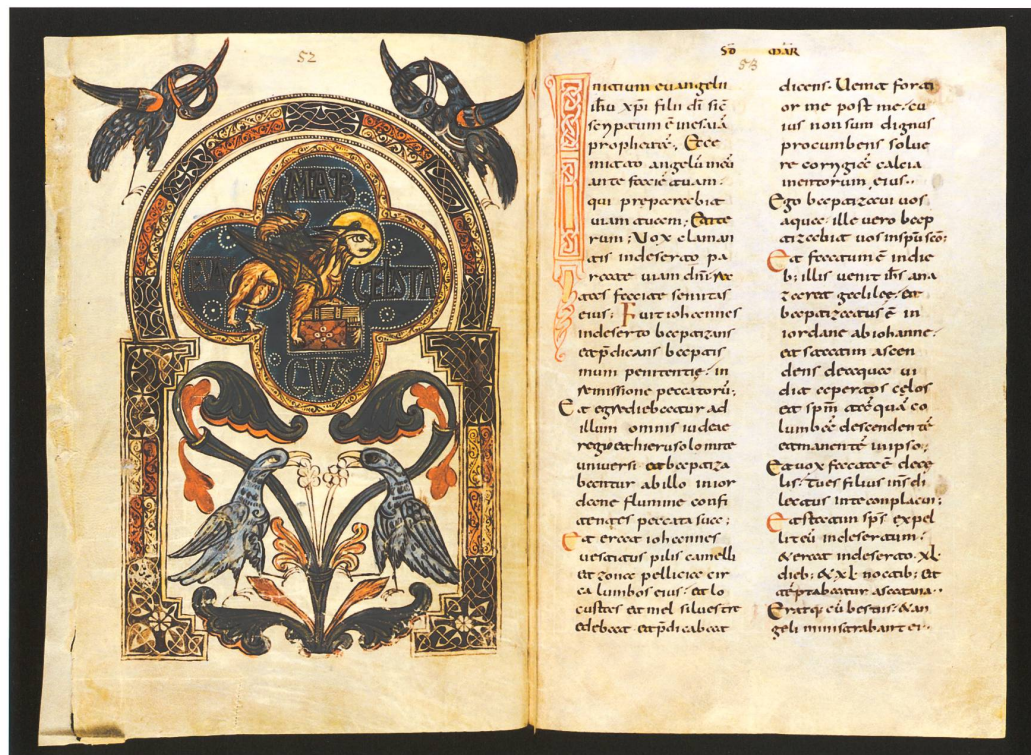 52
MAR
GELISTA
CVS
SC̄D MAR
53
Initium euangelii
ihu xp̄i filii dī sic̄
scriptum ē in esaia
propheta; Ecce
mitto angelū meū
ante faciē tuam.
qui preparabit
uiam tuam; Et ite
rum; Vox claman
tis in deserto pa
rate uiam dn̄i rec
tas facite semitas
eius; Fuit iohannes
in deserto baptizans
et p̄dicans baptis
mum penitentie. in
remissione peccatorū;
Et egrediebatur ad
illum omnis iudeae
regio et hierusolomite
universi et baptiza
bantur ab illo in ior
dane flumine confi
tentes peccata sua;
Et erat iohannes
uestitus pilis camelli
et zona pellicia cir
ca lumbos eius. et lo
custas et mel siluestre
edebat et p̄dicabat
dicens. Uenit forti
or me post me. cu
ius non sum dignus
procumbens solue
re corrigia calcia
mentorum eius.
Ego baptizaui uos
aqua. ille vero bap
tizabit uos in sp̄u sc̄o;
Et factum ē in die
b; illis uenit ih̄s a na
zareat galilee. et
baptizatus ē in
iordane ab iohanne.
et statim ascen
dens de aqua ui
dit apertos celos
et sp̄m tāquā co
lumba descendentē
et manentē in ipso;
Et uox facta ē de ce
lis. tu es filius m̄s di
lectus in te complacui;
Et statim sp̄s expel
lit eū in desertum.
& erat in deserto. XL
dieb; & XL noctib; et
tēptabatur a satana.
Eratq; cū bestiis. & an
geli ministrabant ei.